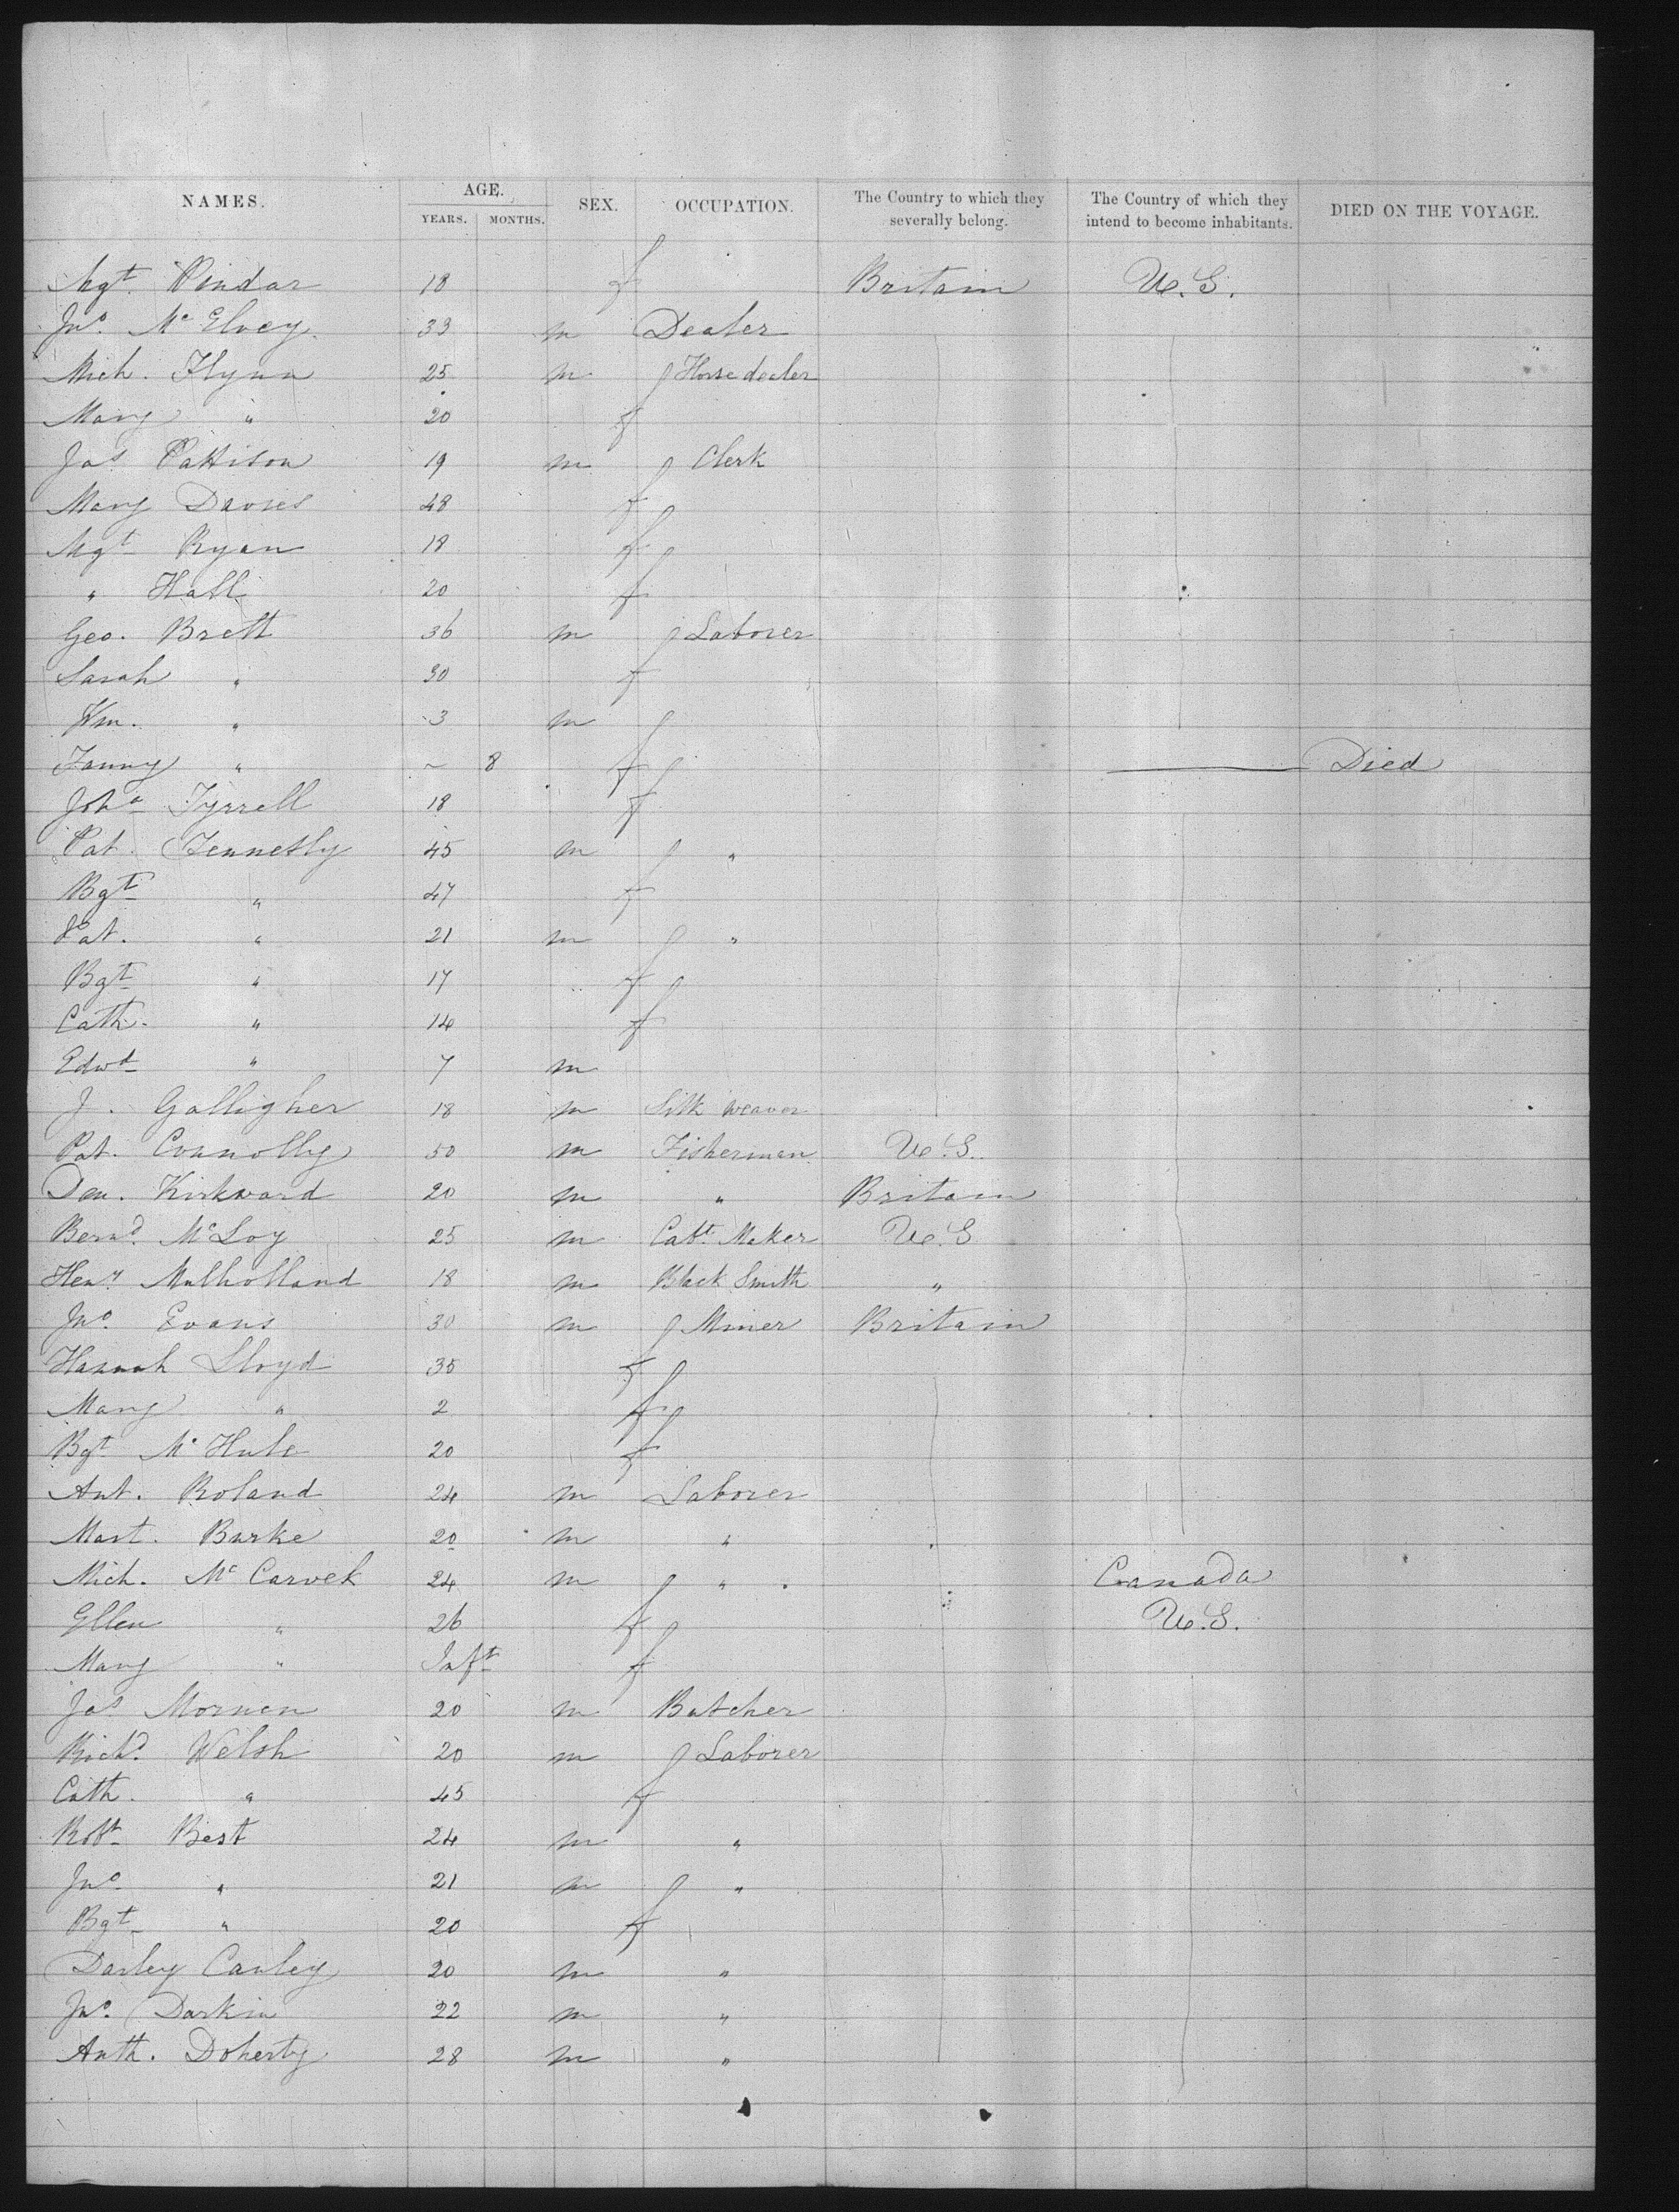 NAMES. AGE. YEARS. MONTHS. SEX. OCCUPATION. The Country to which they severally belong. The Country of which they intend to become inhabitants. DIED ON THE VOYAGE.
Mgt. Pindar 18 f Britain U.S.
Jno. Mc Elvey 33 m Dealer
Mich. Flynn 25 m Horse dealer
Mary " 20 f
Jas Pattison 19 m Clerk
Mary Davies 48 f
Mgt Ryan 18 f
" Hall 20 f
Geo. Brett 36 m Laborer
Sarah " 30 f
Wm. " 3 m
Fanny " ~ 8 f Died
Joha Tyrrell 18 f
Pat. Fennelly 45 m "
Bgt " 47 f
Pat. " 21 m "
Bgt " 17 f
Cath. " 14 f
Edwd " 7 m
J. Galligher 18 m Silk weaver
Pat. Connolly 50 m Fisherman U.S.
Den. Kirkward 20 m " Britain
Bernd. McLoy 25 m Cabt. Maker U.S
Heny Mulholland 18 m Black Smith "
Jno. Evans 30 m Miner Britain
Hannah Lloyd 35 f
Mary " 2 f
Bgt Mc Hule 20 f
Ant. Roland 24 m Laborer
Mart. Burke 20 m "
Mich. Mc Carvek 24 m " Canada
Ellen " 26 f U.S.
Mary " Inft f
Jas Mornen 20 m Butcher
Richd. Welsh 20 m Laborer
Cath. " 45 f
Robt Best 24 m "
Jno " 21 m "
Bgt " 20 f
Darley Canley 20 m "
Jno. Darkin 22 m "
Anth. Doherty 28 m "